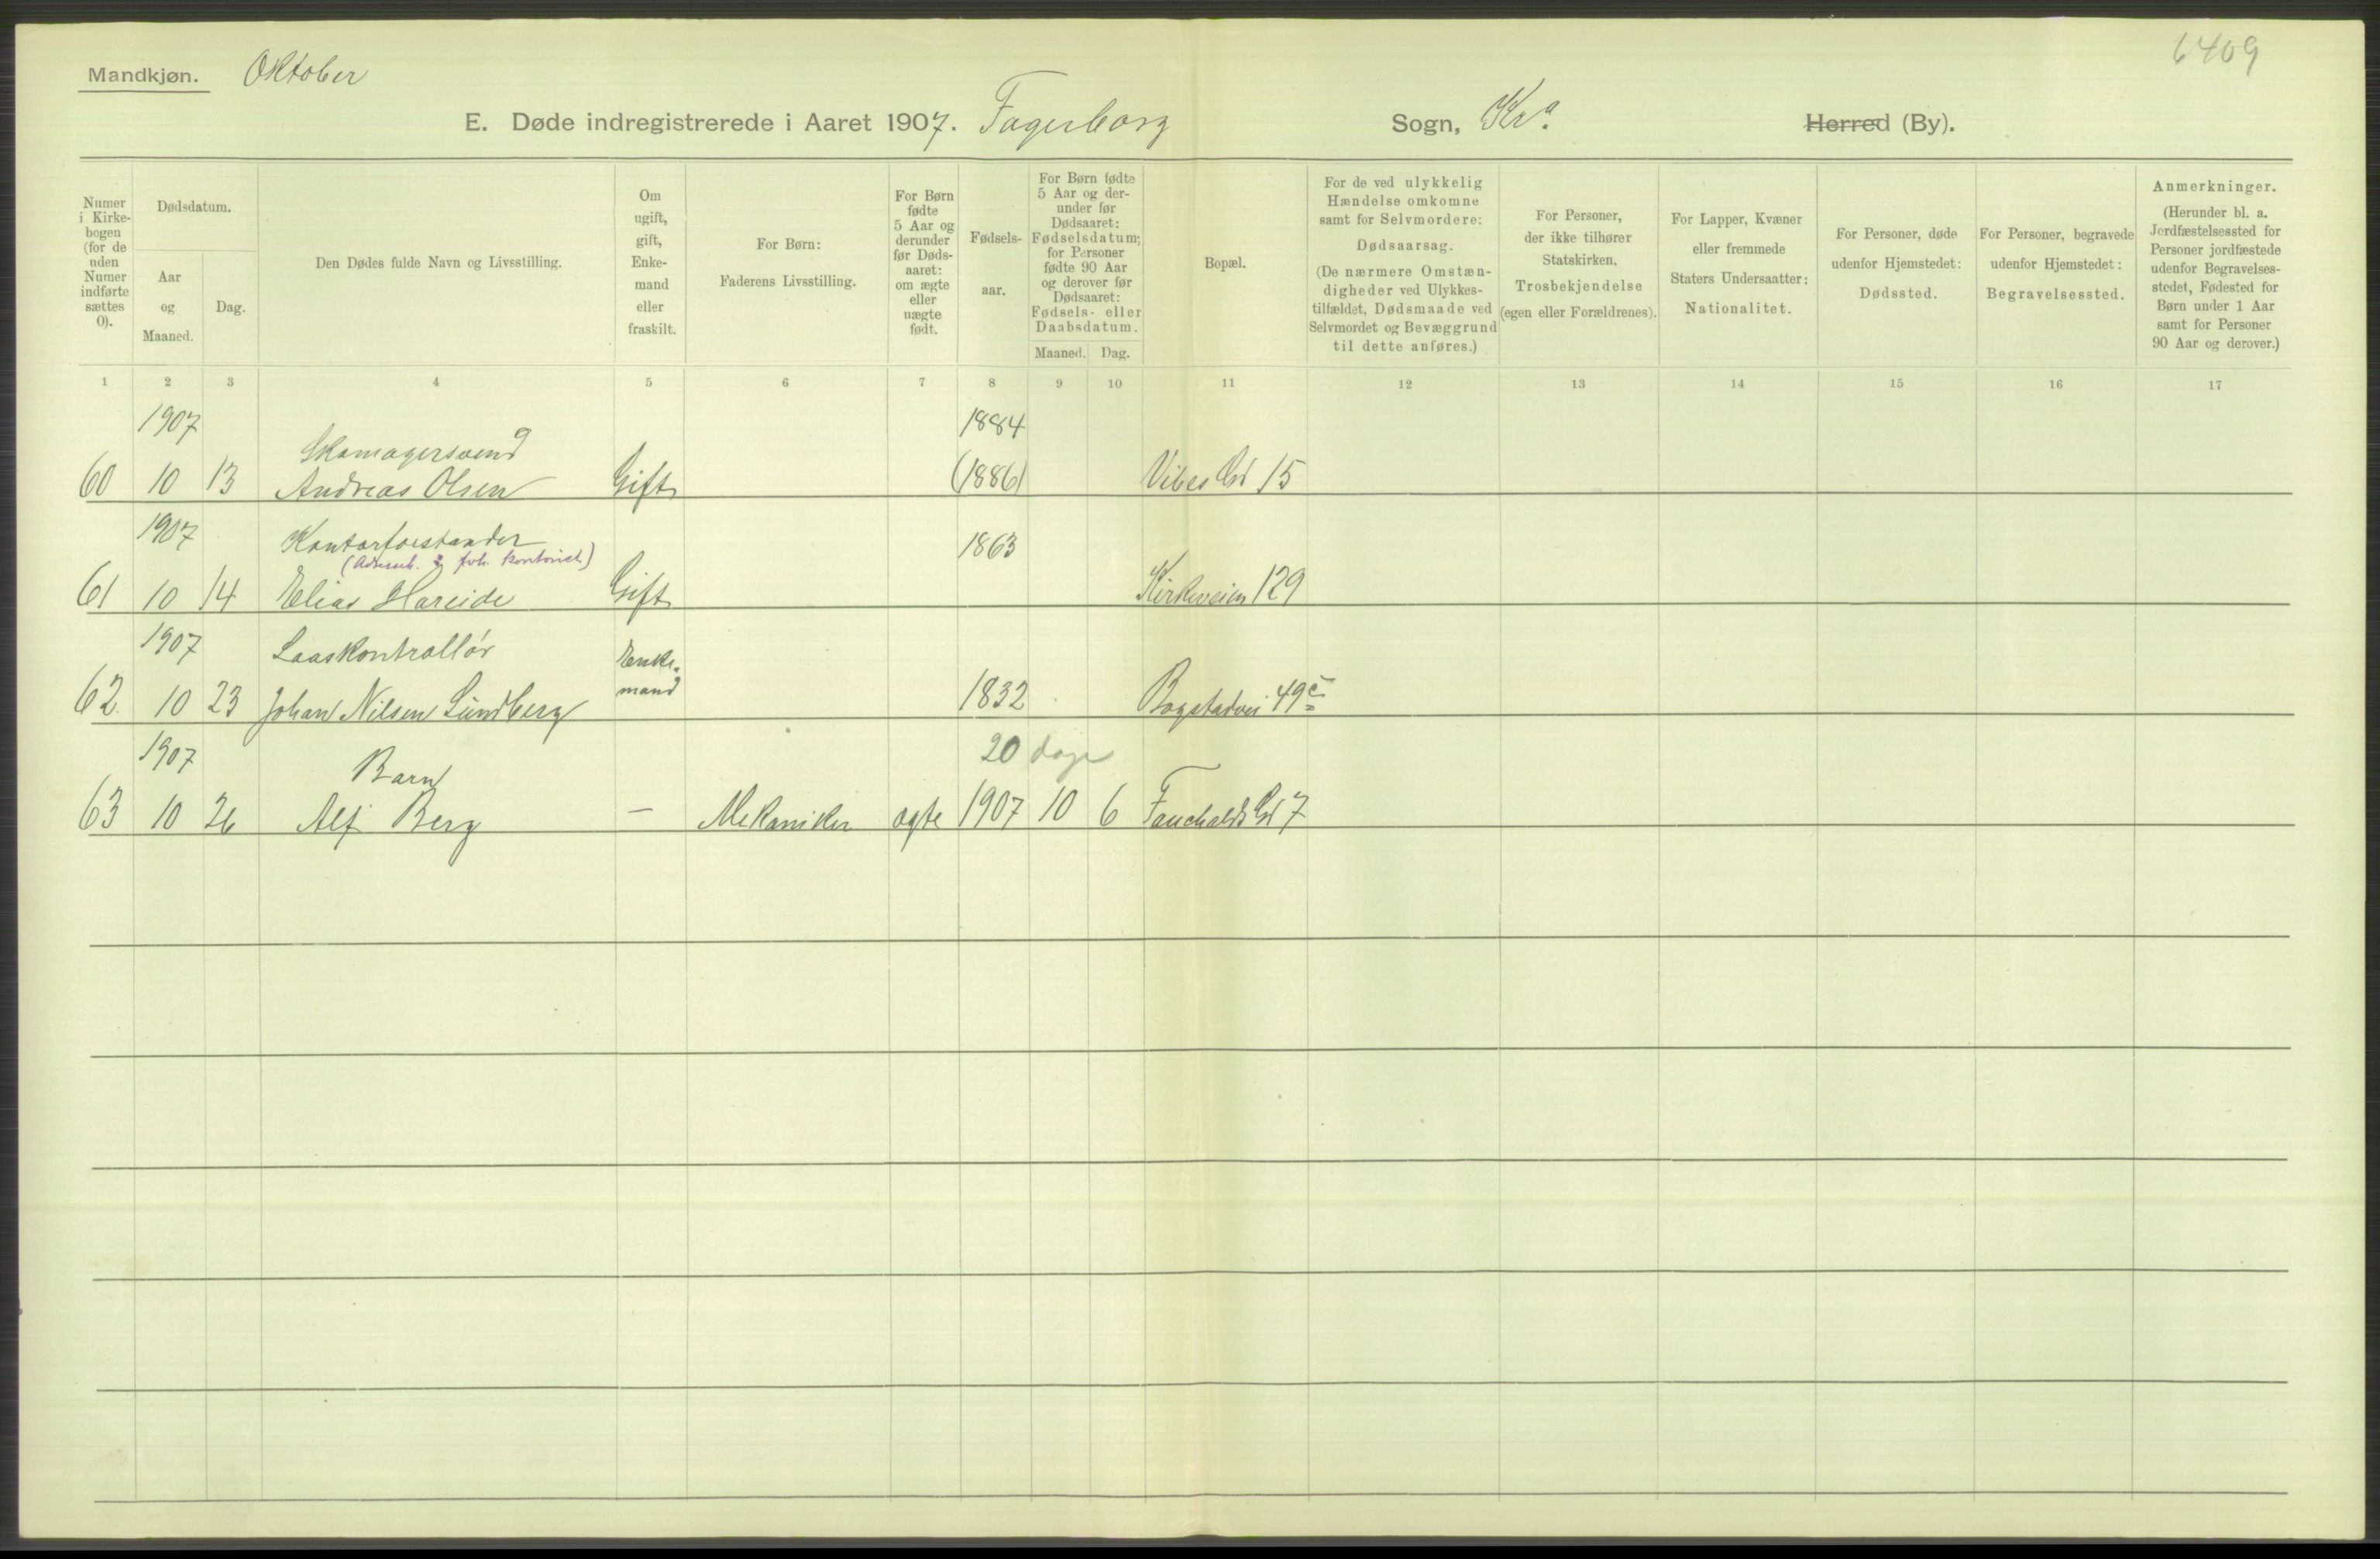 6409
Mandkjøn. Oktober
E. Døde indregistrerede i Aaret 1907. Fagerborg Sogn, Kra. Herred (By).
Numer i Kirkebogen (for de uden Numer indførte sættes 0).
Dødsdatum.
Aar og Maaned.
Dag.
Den Dødes fulde Navn og Livsstilling.
Om ugift, gift, Enkemand eller fraskilt.
For Børn: Faderens Livsstilling.
For Børn fødte 5 Aar og derunder før Dødsaaret: om ægte eller uægte født.
Fødselsaar.
For Børn fødte 5 Aar og derunder før Dødsaaret: Fødselsdatum; for Personer fødte 90 Aar og derover før Dødsaaret: Fødsels- eller Daabsdatum.
Maaned. Dag.
Bopæl.
For de ved ulykkelig Hændelse omkomne samt for Selvmordere: Dødsaarsag. (De nærmere Omstændigheder ved Ulykkestilfældet, Dødsmaade ved Selvmordet og Bevæggrund til dette anføres.)
For Personer, der ikke tilhører Statskirken, Trosbekjendelse (egen eller Forældrenes).
For Lapper, Kvæner eller fremmede Staters Undersaatter: Nationalitet.
For Personer, døde udenfor Hjemstedet: Dødssted.
For Personer, begravede udenfor Hjemstedet: Begravelsessted.
Anmerkninger. (Herunder bl. a. Jordfæstelsessted for Personer jordfæstede udenfor Begravelsesstedet, Fødested for Børn under 1 Aar samt for Personer 90 Aar og derover.)
1 2 3 4 5 6 7 8 9 10 11 12 13 14 15 16 17
1907 Skomagersvend 1884
60 10 13 Andreas Olsen Gift (1886) Vibes Gd 15
1907 Kontorforstander 1863
kontorist)
61 10 14 Elias Hareide Gift Kirkeveien 129
1907 Laaskontrollør Enke-
62 10 23 Johan Nilsen Lundberg mand 1832 Bogstadvei 49c
1907 Barn 20 dage
63 10 26 Alf Berg — Mekaniker ægte 1907 10 6 Fauchalds Gd 7